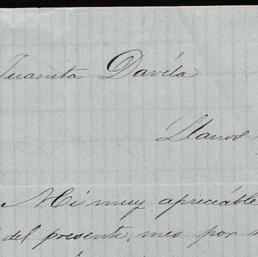 Juanita Davíla
Llanos
Mi muy apreciáble
del presente mes por